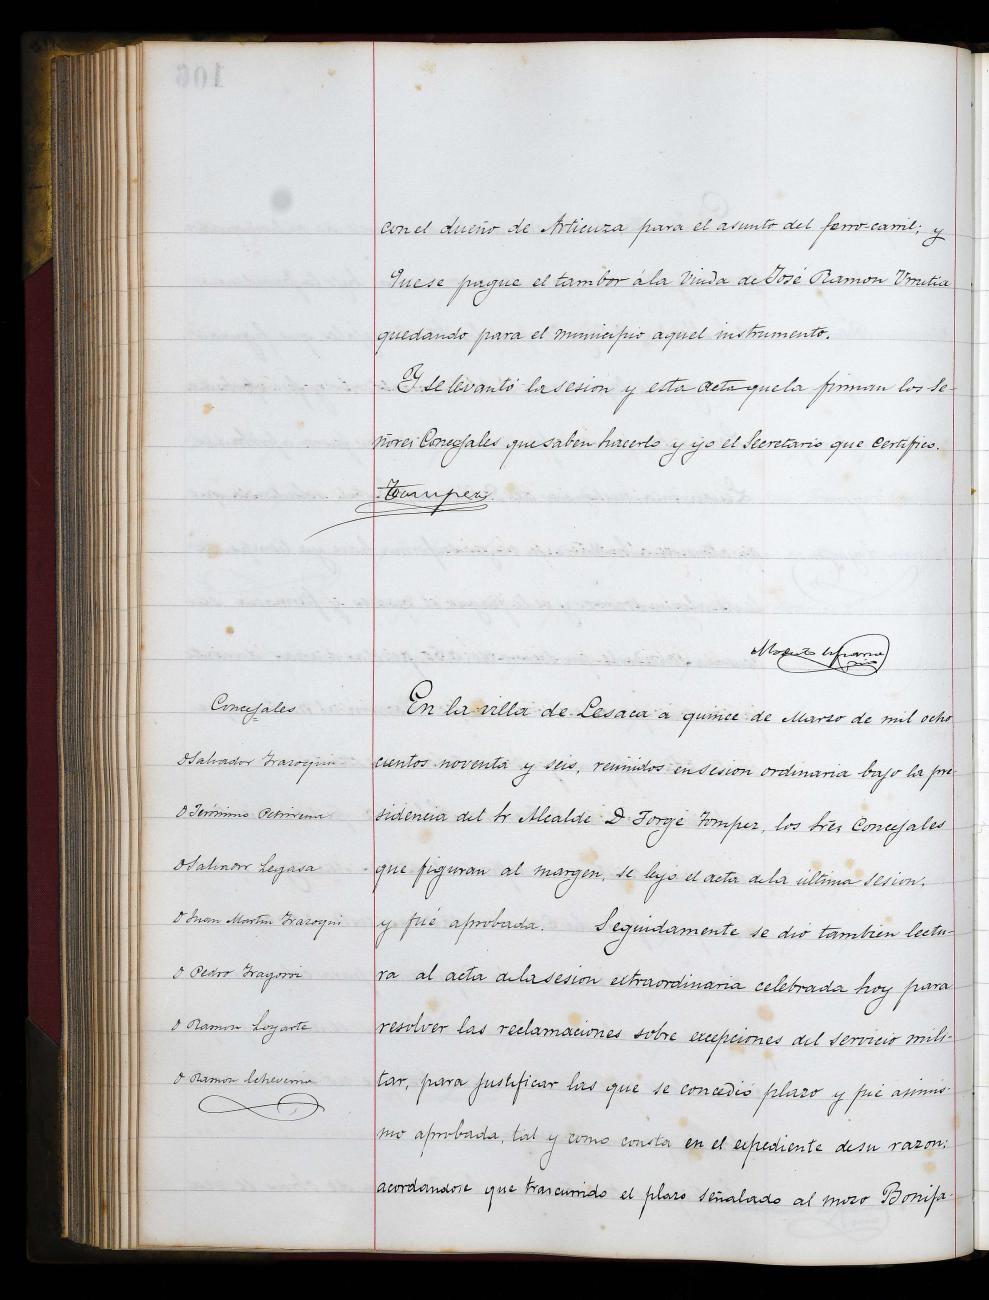 con el dueño de Articuza para el asunto del ferro-carril; y
Que se pague el tambor á la Viuda de José Ramon Urrutia
quedando para el municipio aquel instrumento.
Y se levantó la sesion y esta acta que la firman los Se-
ñores Concejales que saben hacerlo y yo el Secretario que certifico.
Tompes
Concejales
D Salvador Irazoqui
D Jerónimo Petrirena
D Salvador Legasa
D Juan Martin Irazoqui
D Pedro Iragorri
D Ramon Loyarte
D Ramon Echeverria
En la villa de Lesaca a quince de Marzo de mil ocho
cientos noventa y seis, reunidos en sesion ordinaria bajo la pre-
sidencia del Sr Alcalde D Jorge Tompes, los Sres Concejales
que figuran al margen, se leyo el acta de la última sesion,
y fué aprobada. Seguidamente se dió tambien lectu-
ra al acta de la sesion extraordinaria celebrada hoy para
resolver las reclamaciones sobre excepciones del servicio mili-
tar, para justificar las que se concedió plazo y fué asimis-
mo aprobada, tal y como consta en el expediente de su razon:
acordandose que trascurrido el plazo señalado al mozo Bonifa-